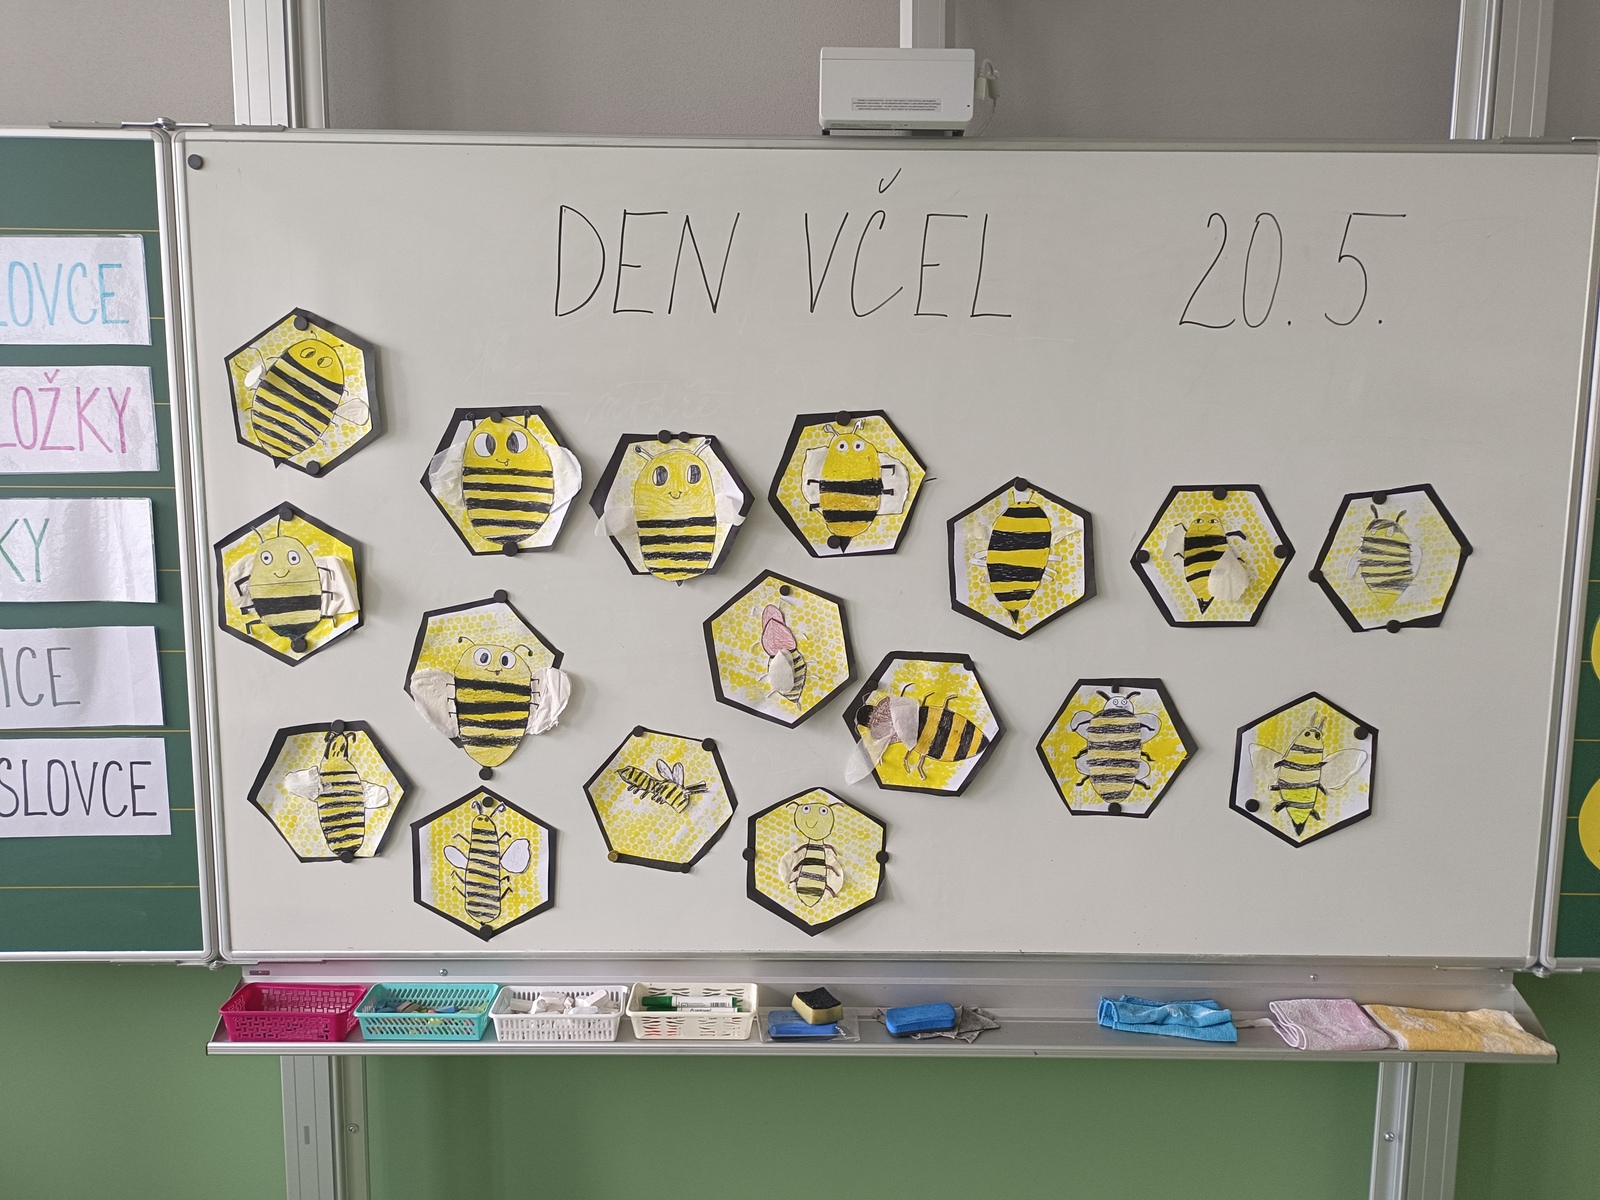 DEN VČEL 20. 5.
LOVCE
LOŽKY
KY
ICE
SLOVCE